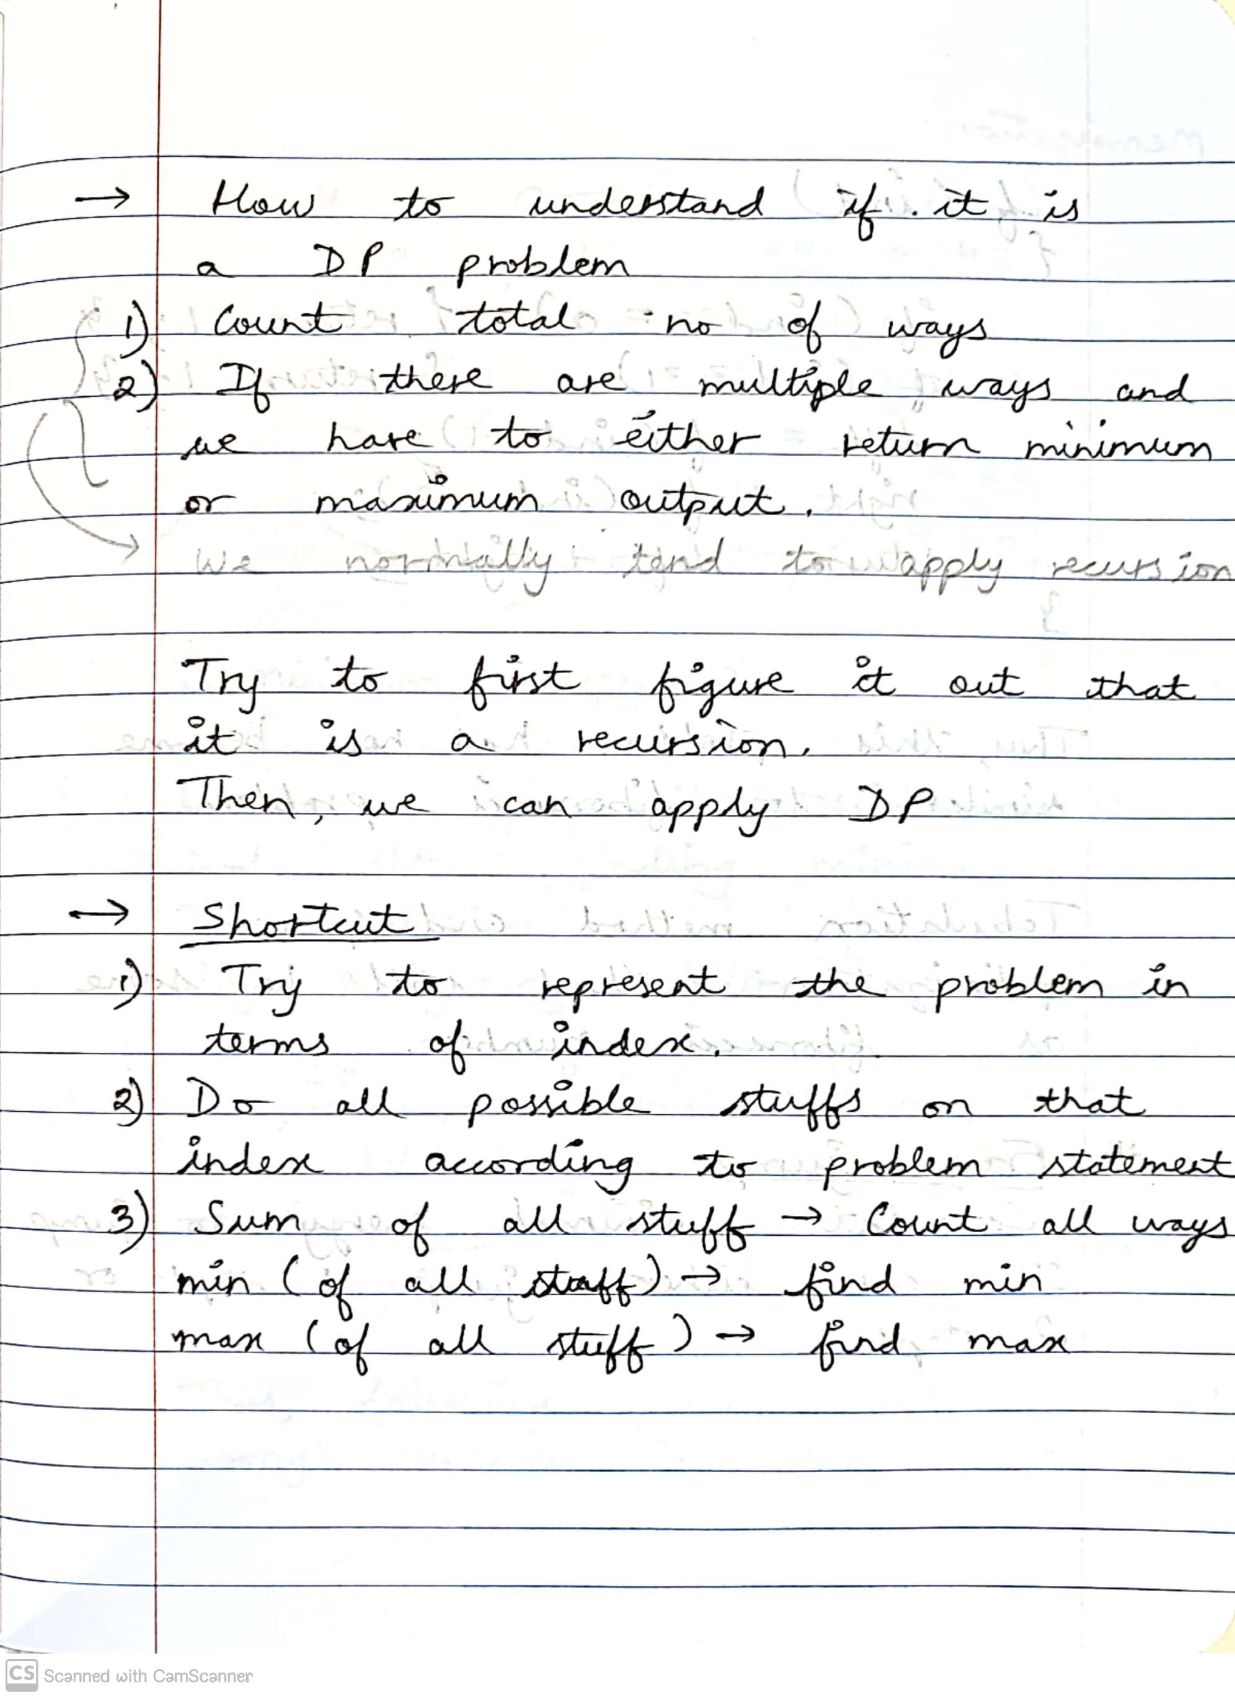 → How to understand if it is
a DP problem
1) Count total no of ways
2) If there are multiple ways and
we have to either return minimum
or maximum output.
We normally tend to apply recursion
Try to first figure it out that
it is a recursion.
Then, we can apply DP
→ Shortcut
1) Try to represent the problem in
terms of index.
2) Do all possible stuffs on that
index according to problem statement
3) Sum of all stuff → Count all ways
min (of all stuff) → find min
max (of all stuff) → find max
CS Scanned with CamScanner